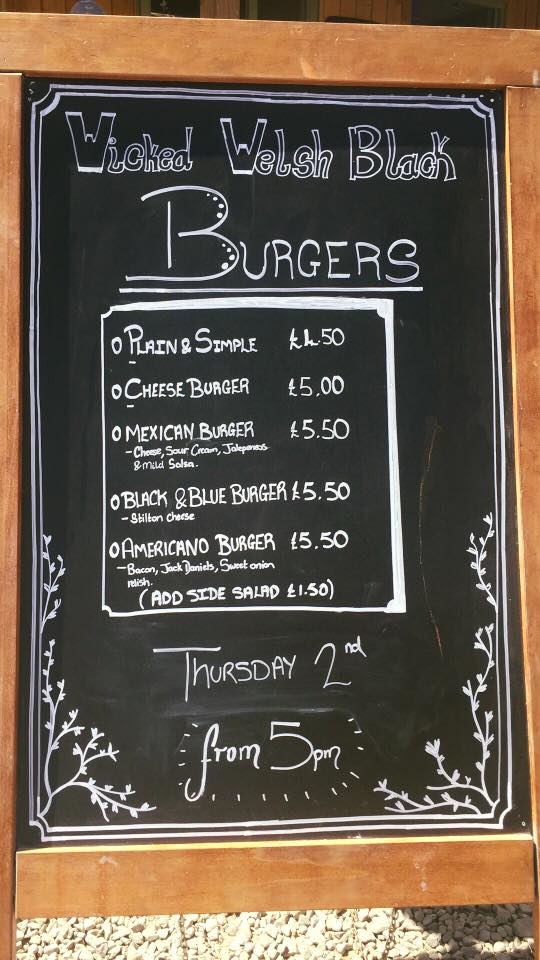 Wicked Welsh Black
BURGERS
O PLAIN & SIMPLE £4.50
O CHEESE BURGER £5.00
O MEXICAN BURGER £5.50
- Cheese, Sour Cream, Jalepenos
& mild Salsa.
O BLACK & BLUE BURGER £5.50
- Stilton cheese
O AMERICANO BURGER £5.50
- Bacon, Jack Daniels, Sweet onion
relish.
(ADD SIDE SALAD £1.50)
THURSDAY 2nd
from 5pm